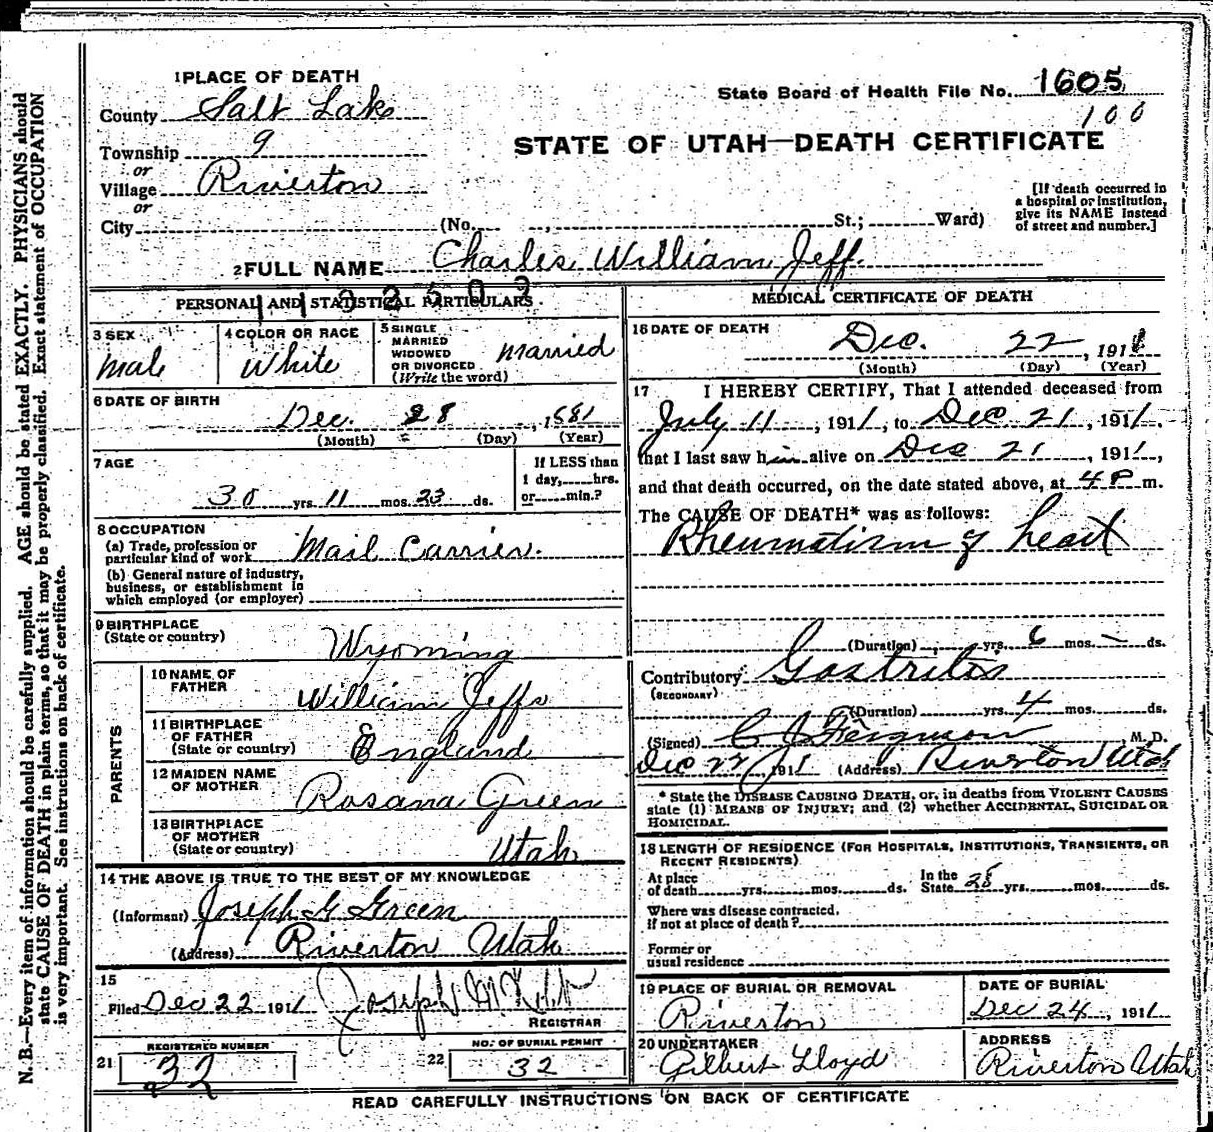 1 PLACE OF DEATH
County Salt Lake
Township 9
or
Village Riverton
or
City (No. , St.; Ward)
State Board of Health File No. 1605
100
STATE OF UTAH—DEATH CERTIFICATE
[If death occurred in
a hospital or institution,
give its NAME instead
of street and number.]
2 FULL NAME Charles William Jeff
PERSONAL AND STATISTICAL PARTICULARS
3 SEX
Male
4 COLOR OR RACE
White
5 SINGLE
MARRIED
WIDOWED
OR DIVORCED
(Write the word)
Married
6 DATE OF BIRTH
Dec. 28, 1881
(Month) (Day) (Year)
7 AGE
30 yrs. 11 mos. 23 ds.
If LESS than
1 day, hrs.
or min.?
8 OCCUPATION
(a) Trade, profession or
particular kind of work Mail Carrier.
(b) General nature of industry,
business, or establishment in
which employed (or employer)
9 BIRTHPLACE
(State or country)
Wyoming
PARENTS
10 NAME OF
FATHER
William Jeffs
11 BIRTHPLACE
OF FATHER
(State or country)
England
12 MAIDEN NAME
OF MOTHER
Rosana Green
13 BIRTHPLACE
OF MOTHER
(State or country)
Utah
14 THE ABOVE IS TRUE TO THE BEST OF MY KNOWLEDGE
(Informant) Joseph G Green
(Address) Riverton Utah
15
Filed Dec 22 1911 Joseph M
REGISTRAR
21 REGISTERED NUMBER
32
22 NO. OF BURIAL PERMIT
32
MEDICAL CERTIFICATE OF DEATH
16 DATE OF DEATH
Dec. 22, 1911
(Month) (Day) (Year)
17 I HEREBY CERTIFY, That I attended deceased from
July 11, 1911, to Dec 21, 1911.
that I last saw him alive on Dec 21, 1911,
and that death occurred, on the date stated above, at 4 P m.
The CAUSE OF DEATH* was as follows:
Rheumatism of heart
(Duration) yrs. 6 mos. — ds.
Contributory Gastritis
(SECONDARY)
(Duration) yrs. 4 mos. ds.
(Signed) C J Ferguson M. D.
Dec 22 1911 (Address) Riverton Utah
* State the DISEASE CAUSING DEATH, or, in deaths from VIOLENT CAUSES
state (1) MEANS OF INJURY; and (2) whether ACCIDENTAL, SUICIDAL OR
HOMICIDAL.
18 LENGTH OF RESIDENCE (FOR HOSPITALS, INSTITUTIONS, TRANSIENTS, OR
RECENT RESIDENTS)
At place
of death yrs. mos. ds.
In the
State 28 yrs. mos. ds.
Where was disease contracted,
if not at place of death?
Former or
usual residence
19 PLACE OF BURIAL OR REMOVAL
Riverton
DATE OF BURIAL
Dec 24, 1911
20 UNDERTAKER
Gilbert Lloyd
ADDRESS
Riverton Utah
READ CAREFULLY INSTRUCTIONS ON BACK OF CERTIFICATE
N. B.—Every item of information should be carefully supplied. AGE should be stated EXACTLY. PHYSICIANS should
state CAUSE OF DEATH in plain terms, so that it may be properly classified. Exact statement of OCCUPATION
is very important. See instructions on back of certificate.